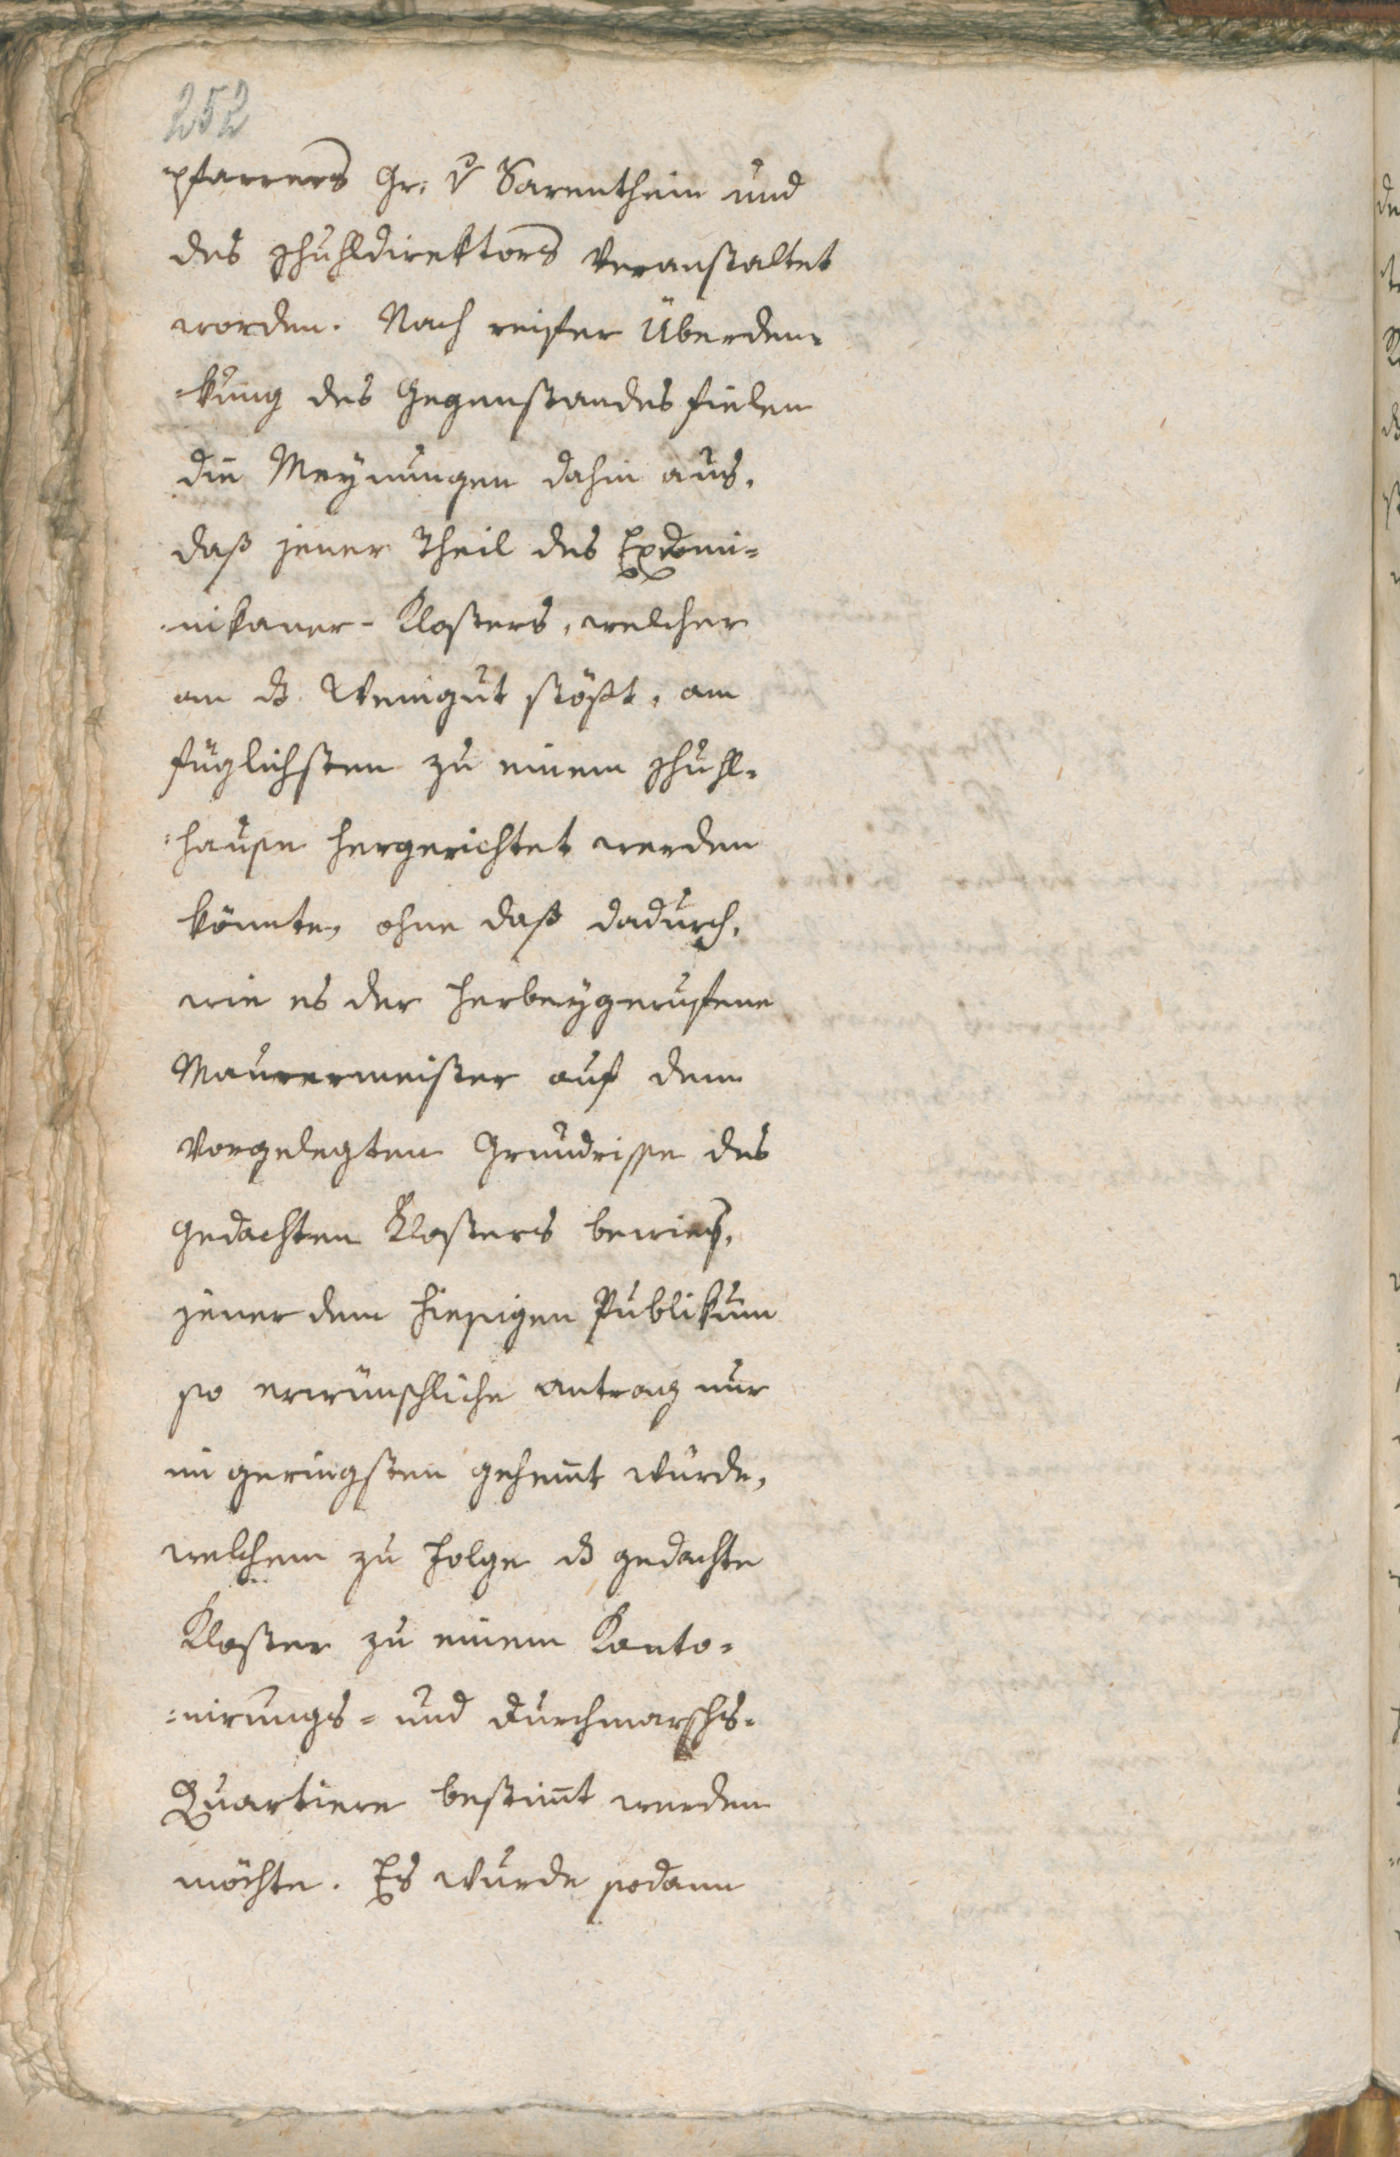 252
pfarrers Gr. v Sarenthein und
des Schuhldirektors veranstaltet
worden. Nach reifer Überden-
-kung des Gegenstandes fielen
die Meynungen dahin aus,
daß jener Theil des Exdomi-
nikaner-Klosters, welcher
an ds Weingut stößt, am
füglichsten zu einem Schuhl-
-hause hergerichtet werden
könnte, ohne daß dadurch,
wie es der herbeygerufene
Maurermeister auf dem
vorgelegten Grundrisse des
gedachten Klosters bewies,
jener dem hiesigen Publikum
so erwünschliche antrag nur
im geringsten gehem̅t würde,
welchem zu folge ds gedachte
Kloster zu einem Kanto-
-nirungs- und Durchmarschs-
Quartiere bestim̅t werden
möchte. Es wurde sodann